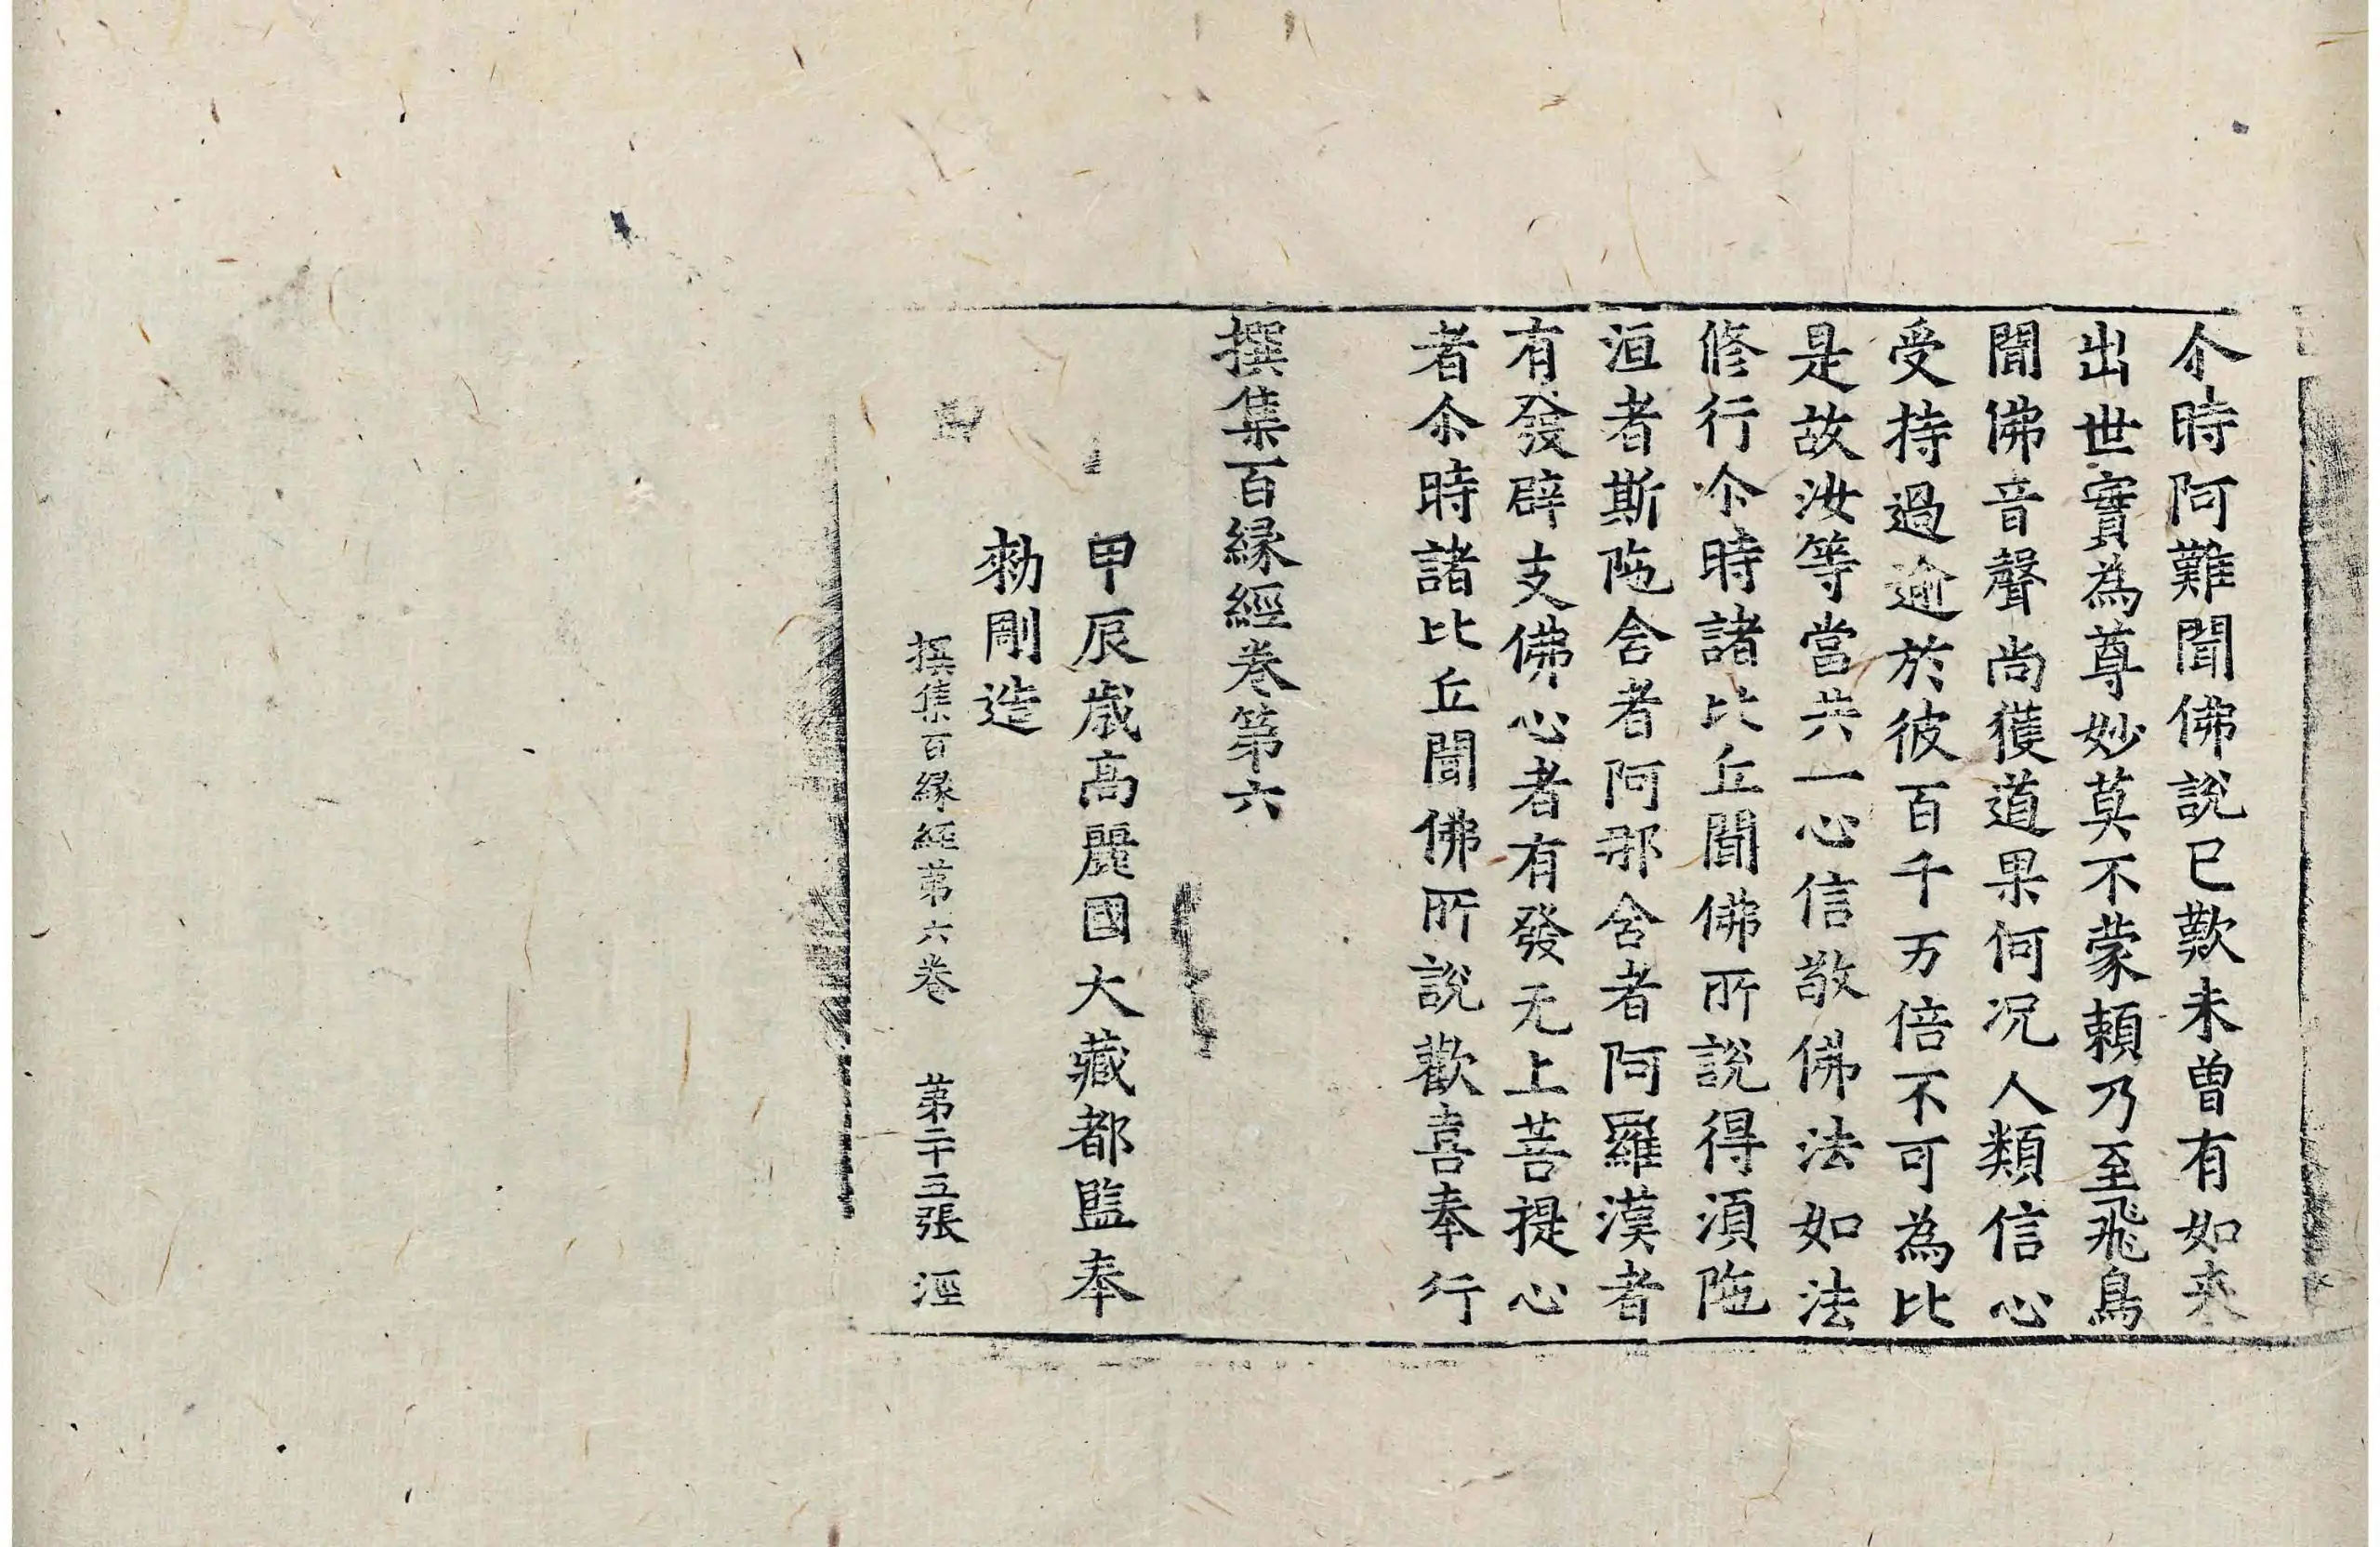 尒時阿難聞佛說已歎未曽有如来
出世實為尊妙莫不蒙頼乃至飛鳥
聞佛音聲尚獲道果何况人類信心
受持過逾於彼百千万倍不可為比
是故汝等當共一心信敬佛法如法
修行尒時諸比丘聞佛所說得湏陁
洹者斯陁含者阿那含者阿羅漢者
有發辟支佛心者有發无上菩提心
者尒時諸比丘聞佛所說歡喜奉行
撰集百縁經巻第六
甲辰歲高麗國大藏都監奉
勑剛造
撰集百縁經第六巻 第二十五張 涇